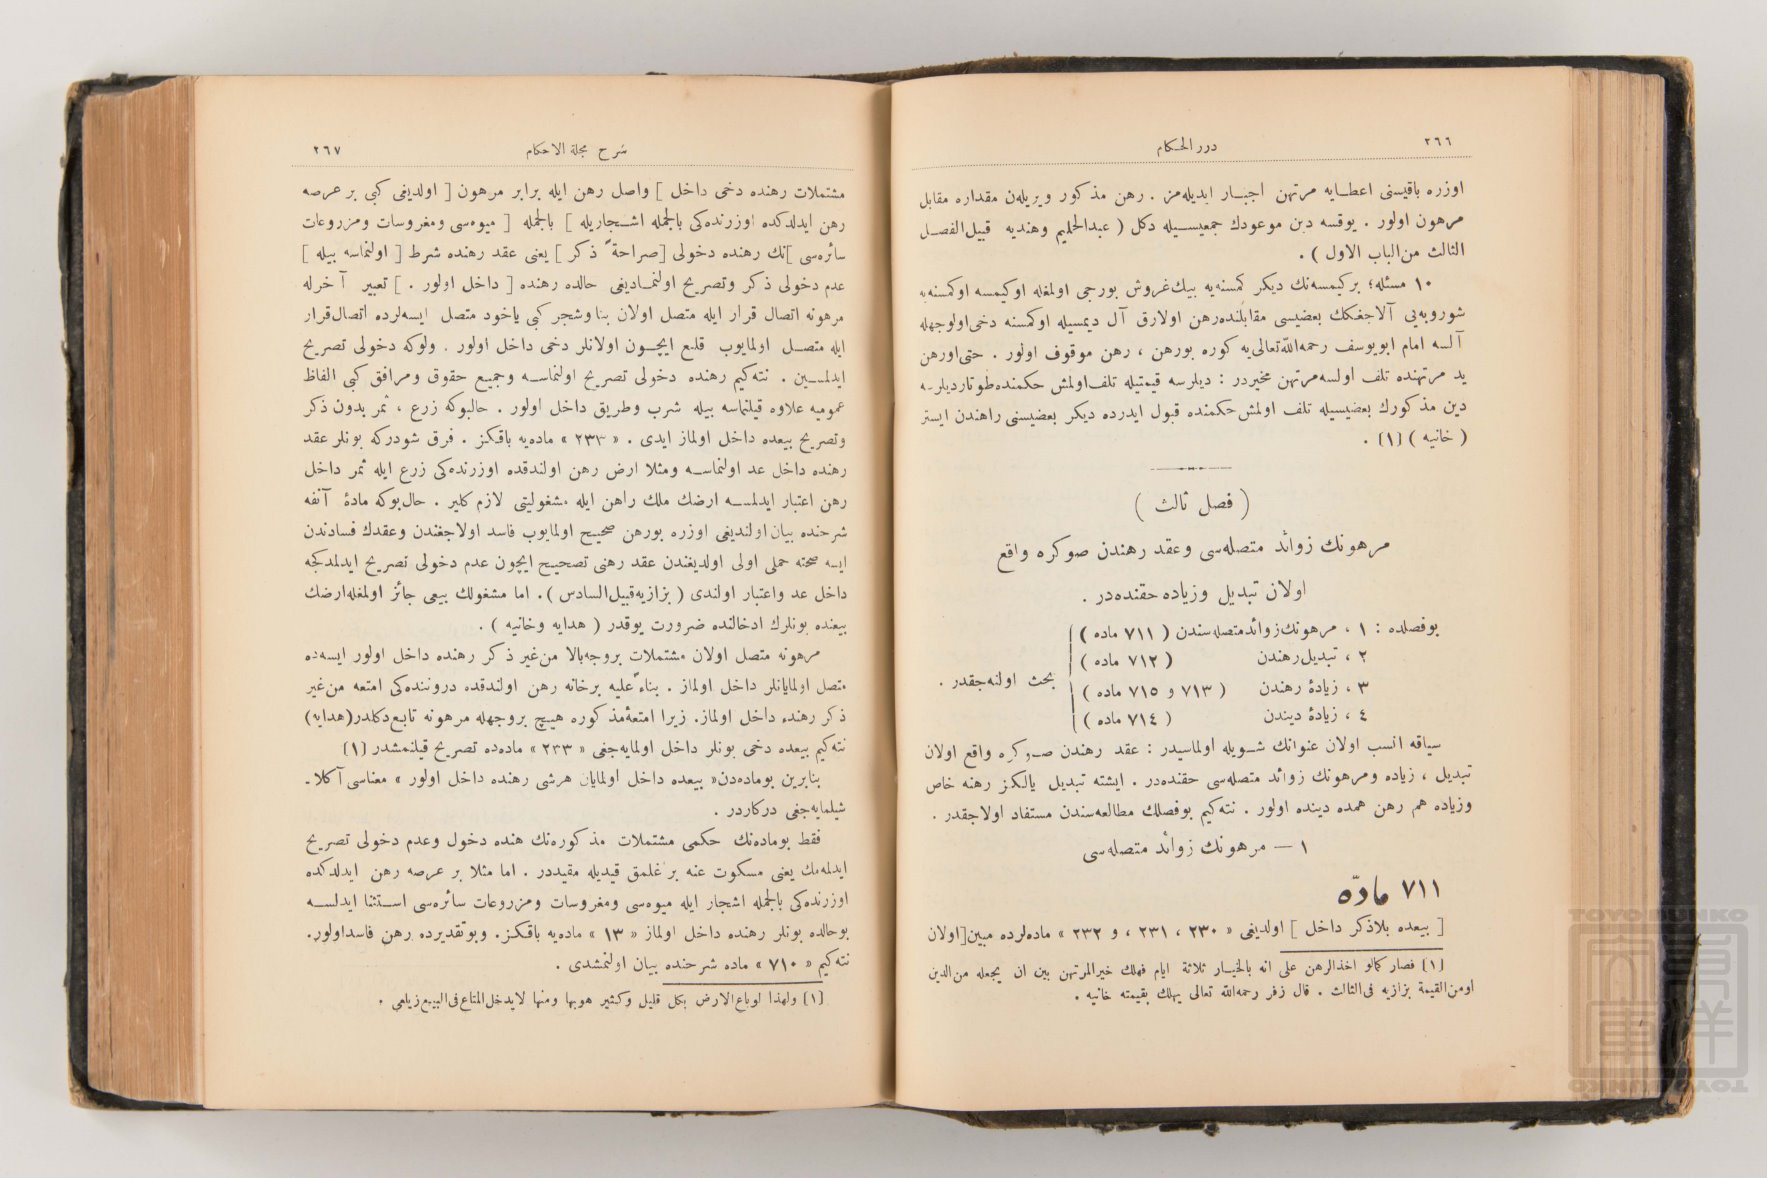 ٢٦٦
درر الحكام
اوزره باقیسنی اعطایه مرتهن اجبار ایدیله‌مز . رهن مذكور ویریلەن مقداره مقابل
مرهون اولور . یوقسه دین موعودك جمعیسیله دكل ( عبدالحلیم وهندیه قبیل‌الفصل
الثالث من‌الباب الاول ) .
١٠ مسئله؛ بركیمسه‌نك دیكر كمسنه‌یه بیك‌غروش بورجی اولمغله اوكیمسه اوكمسنه‌یه
شوروبه‌یی آلاجغكك بعضیسی مقابلنده‌رهن اولارق آل دیمسیله اوكمسنه دخی‌اولوجهله
آلسه امام ابویوسف رحمه‌الله‌تعالی‌یه كوره بورهن ، رهن موقوف اولور . حتی‌اورهن
ید مرتهنده تلف اولسه‌مرتهن مخیردر : دیلرسه قیمتیله تلف‌اولمش حكمنده‌طوتاردیلرسه
دین مذكورك بعضیسیله تلف اولمش‌حكمنده قبول ایدرده دیكر بعضیسنی راهندن ایستر
( خانیه ) [١] .
( فصل ثالث )
مرهونك زوائد متصله‌سی وعقد رهندن صوكره واقع
اولان تبدیل وزیاده حقنده‌در .
بوفصلده : ١ ، مرهونك‌زوائدمتصله‌سندن ( ٧١١ ماده )
٢ ، تبدیل‌رهندن ( ٧١٢ ماده )
٣ ، زیادۀ رهندن ( ٧١٣ و ٧١٥ ماده )
بحث اولنه‌جقدر .
٤ ، زیادۀ دیندن ( ٧١٤ ماده )
سیاقه انسب اولان عنوانك شویله اولماسیدر : عقد رهندن صوكره واقع اولان
تبدیل ، زیاده ومرهونك زوائد متصله‌سی حقنده‌در . ایشته تبدیل یالكز رهنه خاص
وزیاده هم رهن همده دینده اولور . نته‌كیم بوفصلك مطالعه‌سندن مستفاد اولاجقدر .
١ — مرهونك زوائد متصله‌سی
٧١١ مادّه
[ بیعده بلاذكر داخل ] اولدیغی « ٢٣٠ ، ٢٣١ ، و ٢٣٢ » ماده‌لرده مبین [ اولان
[١] فصار كمالو اخذالرهن علی انه بالخیار ثلاثة ایام فهلك خیرالمرتهن بین ان یجعله من‌الدین
اومن‌القیمة بزازیه فی‌الثالث . قال زفر رحمه‌الله تعالی یهلك بقیمته خانیه .
شرح مجلة الاحكام
٢٦٧
مشتملات رهنده دخی داخل ] واصل رهن ایله برابر مرهون [ اولدیغی كبی بر عرصه
رهن ایدلدكده اوزرنده‌كی بالجمله اشجاریله ] بالجمله [ میوه‌سی ومغروسات ومزروعات
سائره‌سی ]نك رهنده دخولی [صراحةً ذكر ] یعنی عقد رهنده شرط [ اولنماسه بیله ]
عدم دخولی ذكر وتصریح اولنمادیغی حالده رهنده [ داخل اولور . ] تعبیر آخرله
مرهونه اتصال قرار ایله متصل اولان بناوشجر كبی یاخود متصل ایسه‌لرده اتصال‌قرار
ایله متصل اولمایوب قلع ایچون اولانلر دخی داخل اولور . ولوكه دخولی تصریح
ایدلمسین . نته‌كیم رهنده دخولی تصریح اولنماسه وجمیع حقوق ومرافق كبی الفاظ
عمومیه علاوه قیلنماسه بیله شرب وطریق داخل اولور . حالبوكه زرع ، ثمر بدون ذكر
وتصریح بیعده داخل اولماز ایدی . « ٢٣٣ » ماده‌یه باقكز . فرق شودركه بونلر عقد
رهنده داخل عد اولنماسه ومثلا ارض رهن اولندقده اوزرنده‌كی زرع ایله ثمر داخل
رهن اعتبار ایدلمسه ارضك ملك راهن ایله مشغولیتی لازم كلیر . حال‌بوكه مادۀ آنفه
شرحنده بیان‌اولندیغی اوزره بورهن صحیح اولمایوب فاسد اولاجغندن وعقدك فسادندن
ایسه صحته حملی اولی اولدیغندن عقد رهنی تصحیح ایچون عدم دخولی تصریح ایدلمدكجه
داخل عد واعتبار اولندی ( بزازیه‌قبیل‌السادس ). اما مشغولك بیعی جائز اولمغله‌ارضك
بیعنده بونلرك ادخالنده ضرورت یوقدر ( هدایه وخانیه ) .
مرهونه متصل اولان مشتملات بروجه‌بالا من‌غیر ذكر رهنده داخل اولور ایسه‌ده
متصل اولمایانلر داخل اولماز . بناءً علیه برخانه رهن اولندقده دروننده‌كی امتعه من‌غیر
ذكر رهنده داخل اولماز. زیرا امتعۀمذكوره هیچ بروجهله مرهونه تابع‌دكلدر(هدایه)
نته‌كیم بیعده دخی بونلر داخل اولمایه‌جغی « ٢٣٣ » ماده‌ده تصریح قیلنمشدر [١]
بنابرین بوماده‌دن« بیعده داخل اولمایان هرشی رهنده داخل اولور » معناسی آكلا-
شیلمایه‌جغی دركاردر .
فقط بوماده‌نك حكمی مشتملات مذكوره‌نك هنده دخول وعدم دخولی تصریح
ایدلمه‌مك یعنی مسكوت عنه براغلمق قیدیله مقیددر . اما مثلا بر عرصه رهن ایدلدكده
اوزرنده‌كی بالجمله اشجار ایله میوه‌سی ومغروسات ومزروعات سائره‌سی استثنا ایدلسه
بوحالده بونلر رهنده داخل اولماز « ١٣ » ماده‌یه باقكز. وبوتقدیرده رهن فاسداولور.
نته‌كیم « ٧١٠ » ماده شرحنده بیان اولنمشدی .
[١] ولهذا لوباع‌الارض بكل قلیل وكثیر هوبها ومنها لایدخل‌المتاع‌فی‌البیع‌زیلعی .
TOYO BUNKO
東洋文庫
TOYO BUNKO